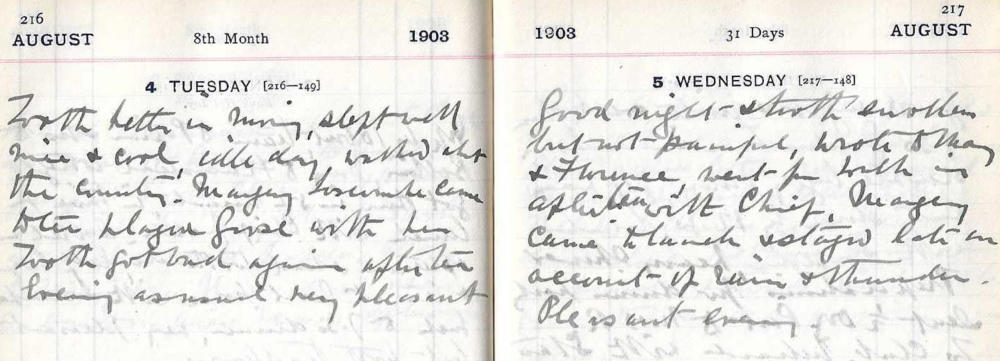 216
AUGUST 8th Month 1903
4 TUESDAY [216—149]
Tooth better in morning, slept well
nice & cool, idle day, walked abt
the country. Margery came
to tea played with her
Tooth got bad again after tea
Evening as usual very pleasant
217
1903 31 Days AUGUST
5 WEDNESDAY [217—148]
Good night - tooth swollen
but not painful, wrote to May
& Florence, went for walk in
after tea with Chief, Margery
came to lunch & stayed late on
account of rain & thunder.
Pleasant evening.